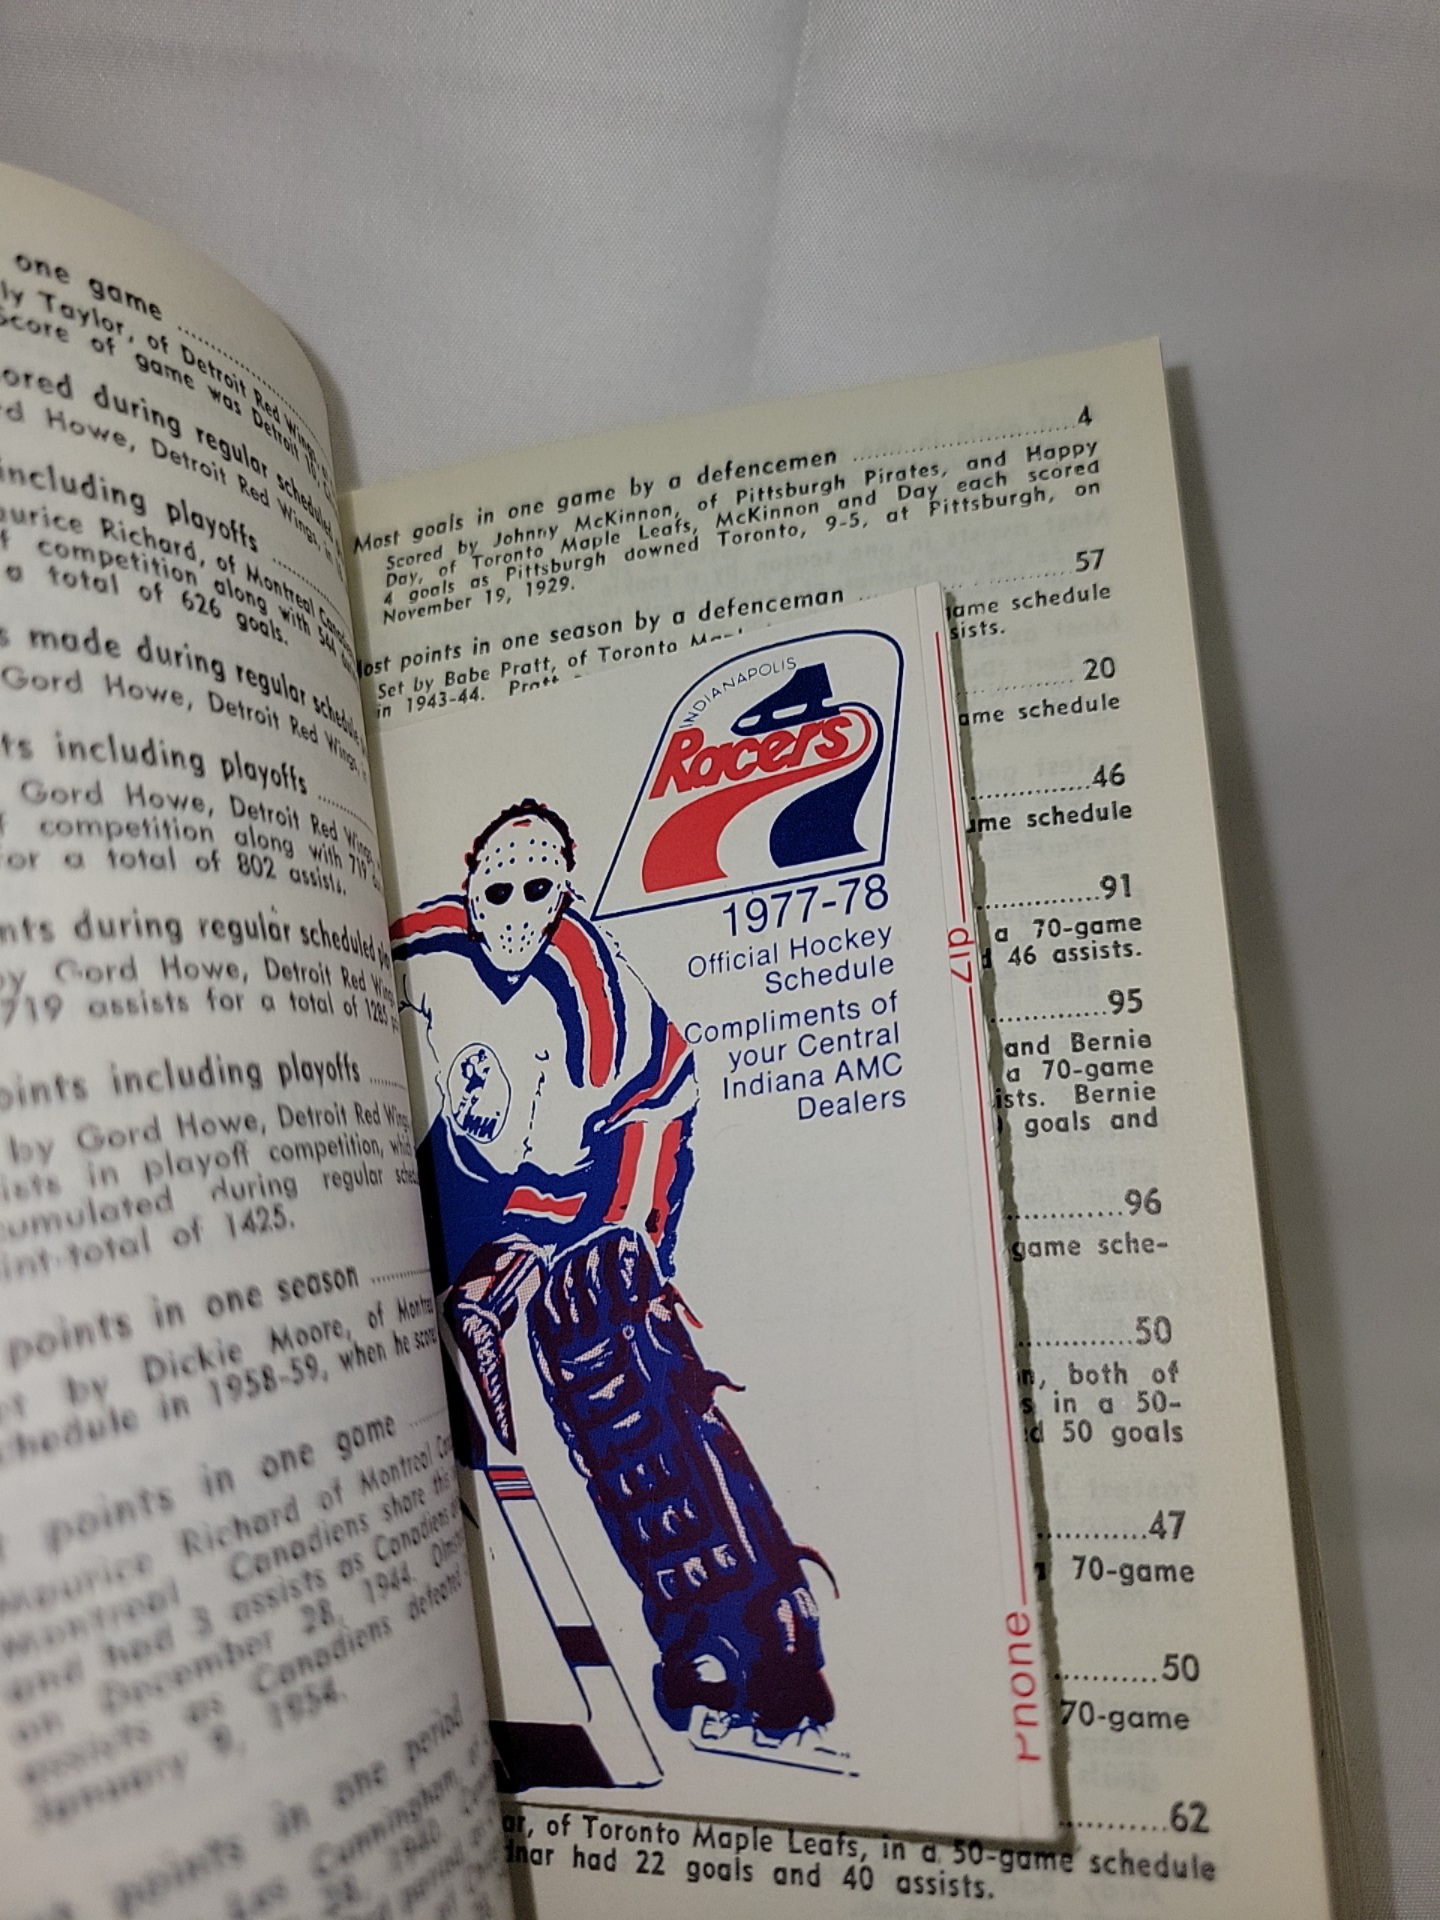 one game
ly Taylor, of Detroit Red Wings
Score of game was Detroit 10,
ored during regular scheduled
rd Howe, Detroit Red Wings, in
including playoffs
aurice Richard, of Montreal Canadiens
f competition along with 544
a total of 626 goals.
s made during regular schedule
Gord Howe, Detroit Red Wings, in
ts including playoffs
Gord Howe, Detroit Red Wings,
f competition along with 719
for a total of 802 assists.
nts during regular scheduled play
by Gord Howe, Detroit Red Wings
719 assists for a total of 1285
oints including playoffs
by Gord Howe, Detroit Red Wings
ists in playoff competition, which
cumulated during regular sche
int-total of 1425.
points in one season
by Dickie Moore, of Montreal
chedule in 1958-59, when he score
points in one game
Maurice Richard of Montreal
Montreal Canadiens share this
and had 3 assists as Canadiens
on December 28, 1944. Olmste
assists as Canadiens defeated
January 9, 1954.
points in one period
Les Cunningham,
Most goals in one game by a defencemen ........................4
Scored by Johnny McKinnon, of Pittsburgh Pirates, and Happy
Day, of Toronto Maple Leafs, McKinnon and Day each scored
4 goals as Pittsburgh downed Toronto, 9-5, at Pittsburgh, on
November 19, 1929.
Most points in one season by a defenceman ........57
Set by Babe Pratt, of Toronto Map game schedule
in 1943-44. Pratt sists.
20
ame schedule
46
ame schedule
91
a 70-game
d 46 assists.
95
and Bernie
a 70-game
ists. Bernie
goals and
96
game sche-
50
n, both of
s in a 50-
d 50 goals
47
70-game
50
70-game
62
ar, of Toronto Maple Leafs, in a 50-game schedule
dnar had 22 goals and 40 assists.
INDIANAPOLIS
Racers
1977-78
Official Hockey
Schedule
Compliments of
your Central
Indiana AMC
Dealers
Zip
Phone